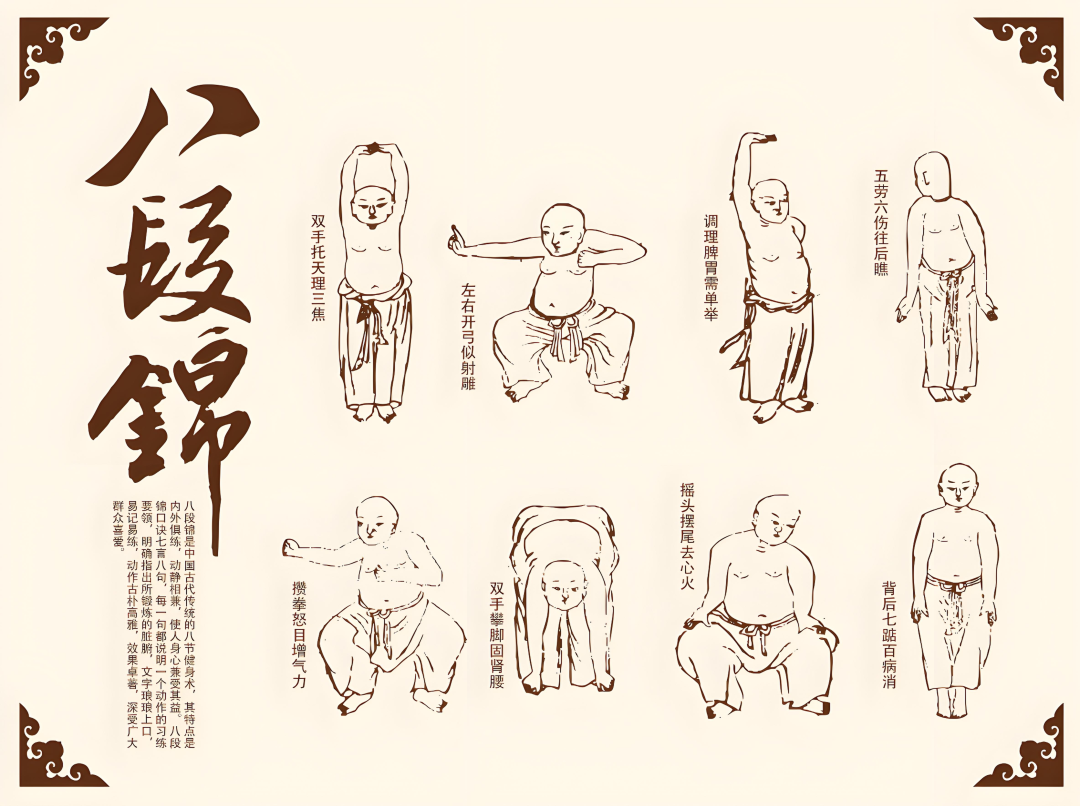 八段錦
八段锦是中国古代传统的八节健身术，其特点是
内外俱练，动静相兼，使人身心兼受其益。八段
锦口诀七言八句，每一句都说明一个动作的习练
要领，明确指出所锻炼的脏腑，文字琅琅上口，
易记易练，动作古朴高雅，效果卓著，深受广大
群众喜爱。
双手托天理三焦
左右开弓似射雕
调理脾胃需单举
五劳六伤往后瞧
攒拳怒目增气力
双手攀脚固肾腰
摇头摆尾去心火
背后七踮百病消